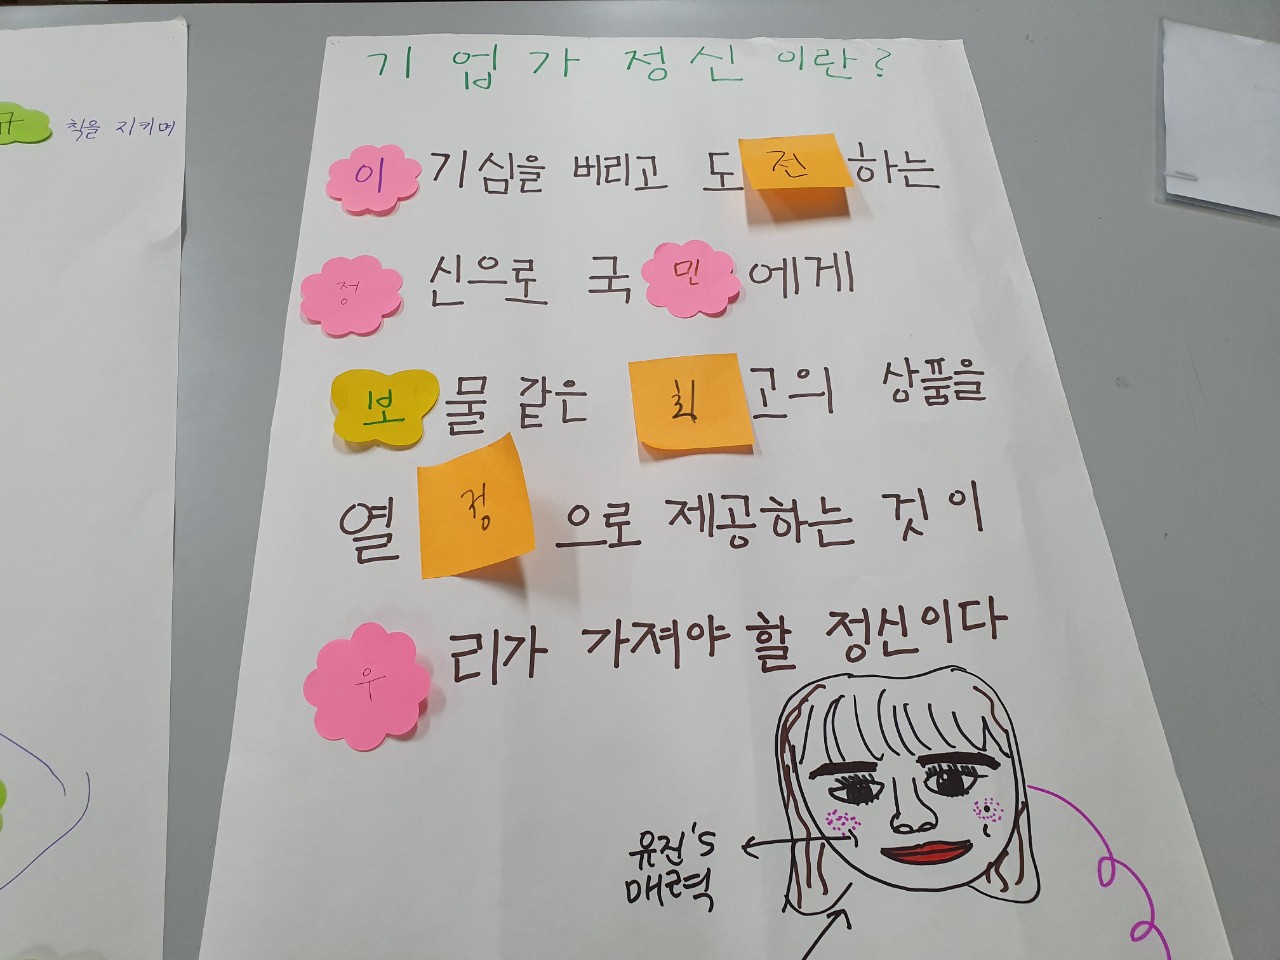 기업가 정신이란?
이기심을 버리고 도전하는
정신으로 국민에게
보물 같은 최고의 상품을
열정으로 제공하는 것이
우리가 가져야 할 정신이다
유진's
매력
규칙을 지키며